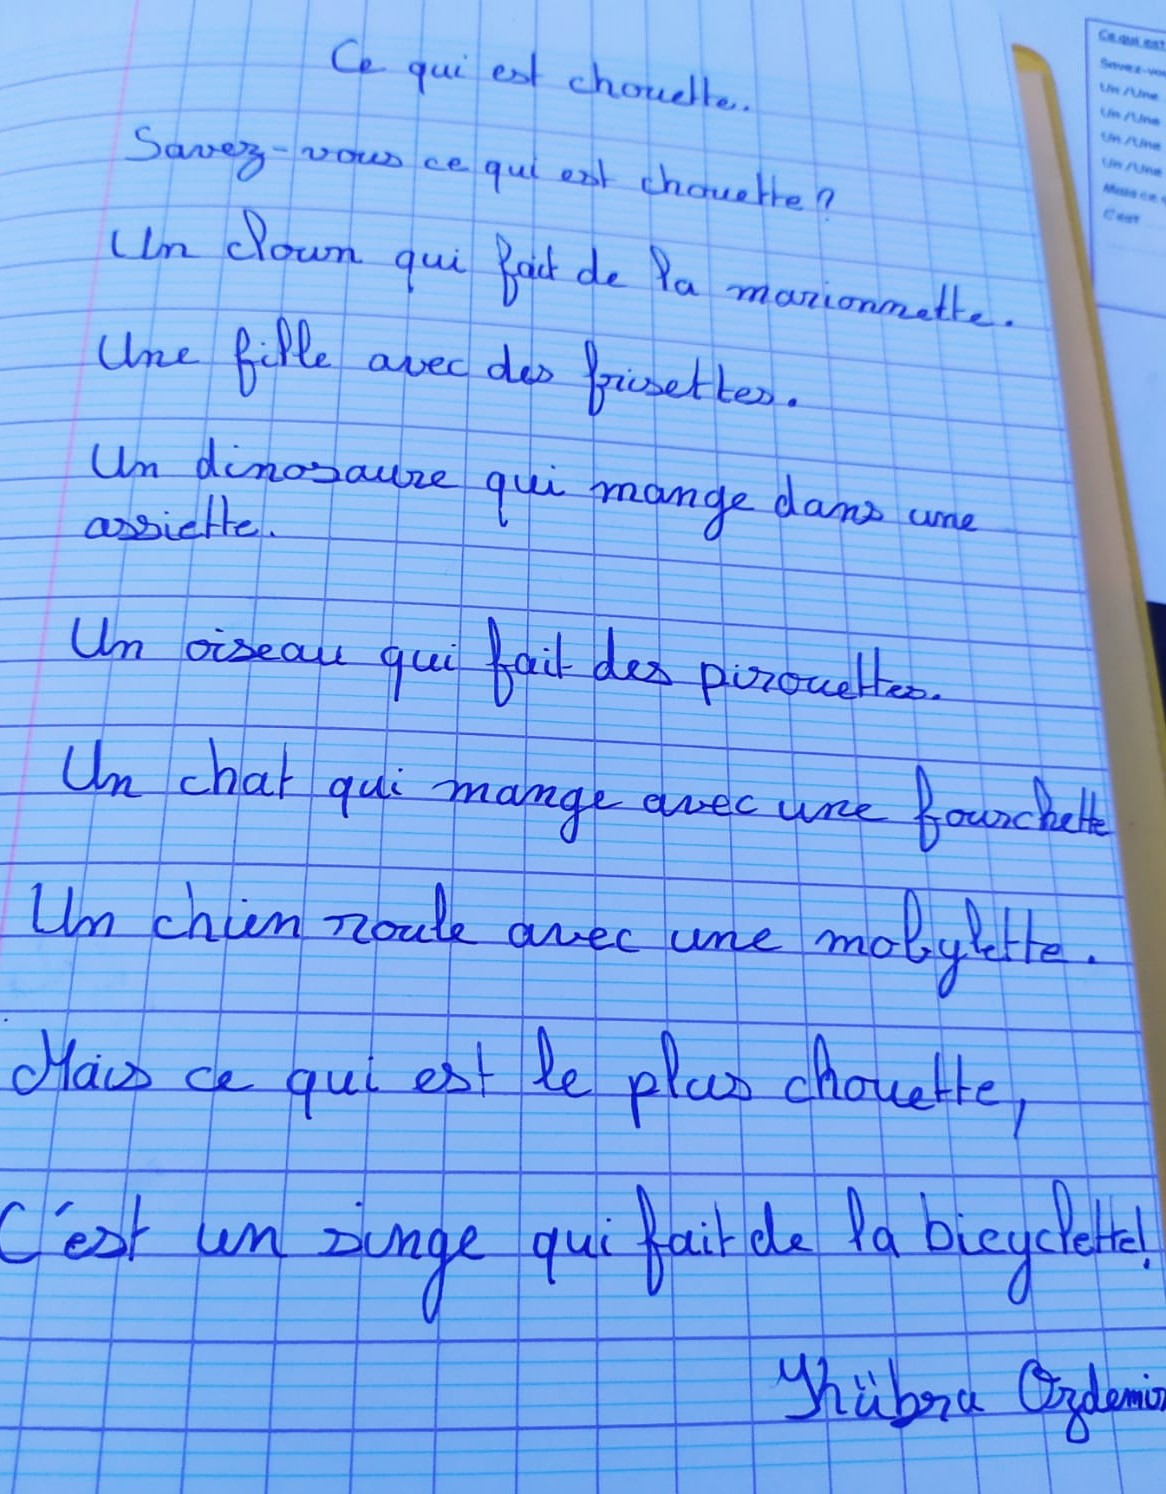 Ce qui est chouette.
Savez-vous ce qui est chouette?
Un clown qui fait de la marionnette.
Une fille avec des frisettes.
Un dinosaure qui mange dans une
assiette.
Un oiseau qui fait des pirouettes.
Un chat qui mange avec une fourchette
Un chien roule avec une mobylette.
Mais ce qui est le plus chouette,
C'est un singe qui fait de la bicyclette!
Khübra Ozdemir
Ce qui est
Savez-vou
Un /Une
Un /Une
Un /Une
Un /Une
Mais ce q
C'est